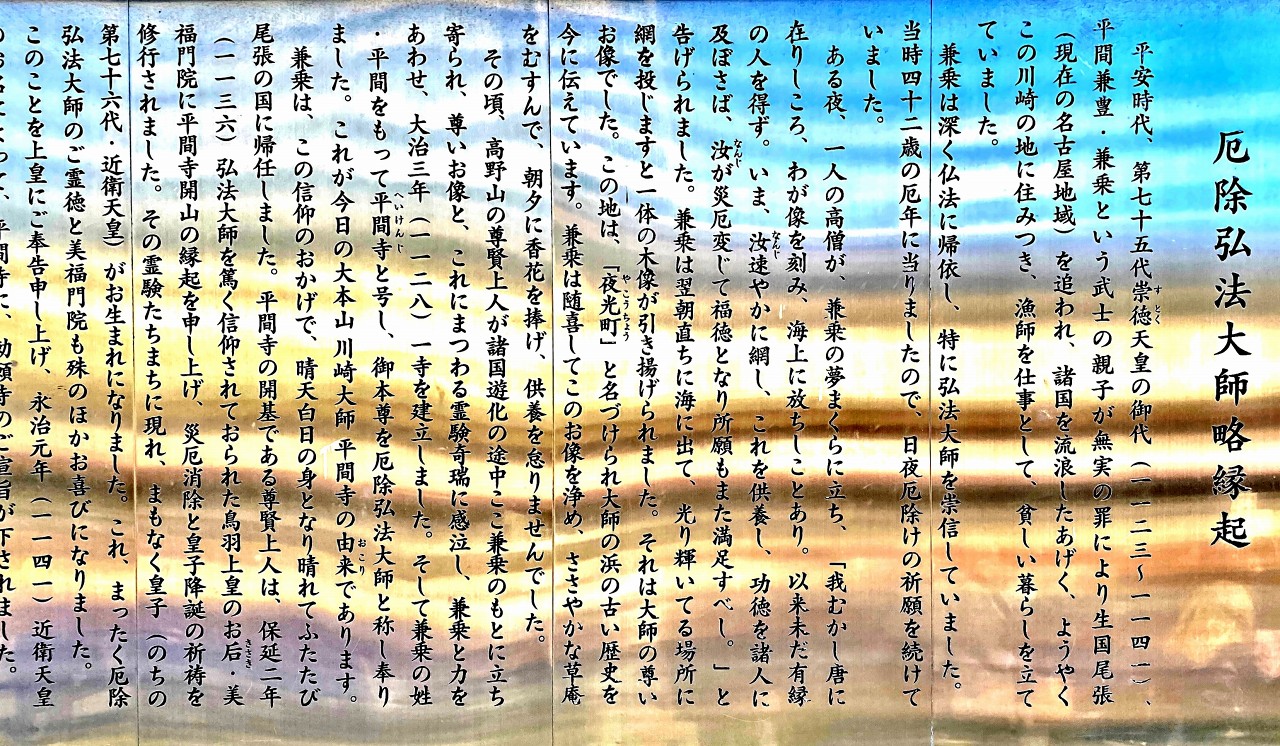 厄除弘法大師略縁起
平安時代、第七十五代崇徳天皇の御代（一一二三〜一一四一）、
平間兼豊・兼乗という武士の親子が無実の罪により生国尾張
（現在の名古屋地域）を追われ、諸国を流浪したあげく、ようやく
この川崎の地に住みつき、漁師を仕事として、貧しい暮らしを立て
ていました。
兼乗は深く仏法に帰依し、特に弘法大師を崇信していました。
当時四十二歳の厄年に当りましたので、日夜厄除けの祈願を続けて
いました。
ある夜、一人の高僧が、兼乗の夢まくらに立ち、「我むかし唐に
在りしころ、わが像を刻み、海上に放ちしことあり。以来未だ有縁
の人を得ず。いま、汝速やかに網し、これを供養し、功徳を諸人に
及ぼさば、汝が災厄変じて福徳となり所願もまた満足すべし。」と
告げられました。兼乗は翌朝直ちに海に出て、光り輝いてる場所に
網を投じますと一体の木像が引き揚げられました。それは大師の尊い
お像でした。この地は、「夜光町」と名づけられ大師の浜の古い歴史を
今に伝えています。兼乗は随喜してこのお像を浄め、ささやかな草庵
をむすんで、朝夕に香花を捧げ、供養を怠りませんでした。
その頃、高野山の尊賢上人が諸国遊化の途中ここ兼乗のもとに立ち
寄られ、尊いお像と、これにまつわる霊験奇瑞に感泣し、兼乗と力を
あわせ、大治三年（一一二八）一寺を建立しました。そして兼乗の姓
・平間をもって平間寺と号し、御本尊を厄除弘法大師と称し奉り
ました。これが今日の大本山川崎大師平間寺の由来であります。
兼乗は、この信仰のおかげで、晴天白日の身となり晴れてふたたび
尾張の国に帰任しました。平間寺の開基である尊賢上人は、保延二年
（一一三六）弘法大師を篤く信仰されておられた鳥羽上皇のお后・美
福門院に平間寺開山の縁起を申し上げ、災厄消除と皇子降誕の祈祷を
修行されました。その霊験たちまちに現れ、まもなく皇子（のちの
第七十六代・近衛天皇）がお生まれになりました。これ、まったく厄除
弘法大師のご霊徳と美福門院も殊のほかお喜びになりました。
このことを上皇にご奉告申し上げ、永治元年（一一四一）近衛天皇
平間寺に、勅願寺のご宣旨が下されました。